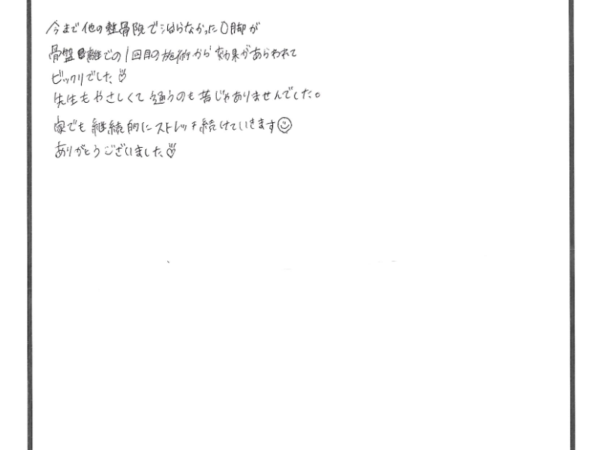 今まで他の整骨院で治らなかったO脚が
骨盤 での1回目の施術から効果があらわれて
ビックリでした♡
先生もやさしくて通うのも苦じゃありませんでした。
家でも継続的にストレッチ続けていきます☺
ありがとうございました♡